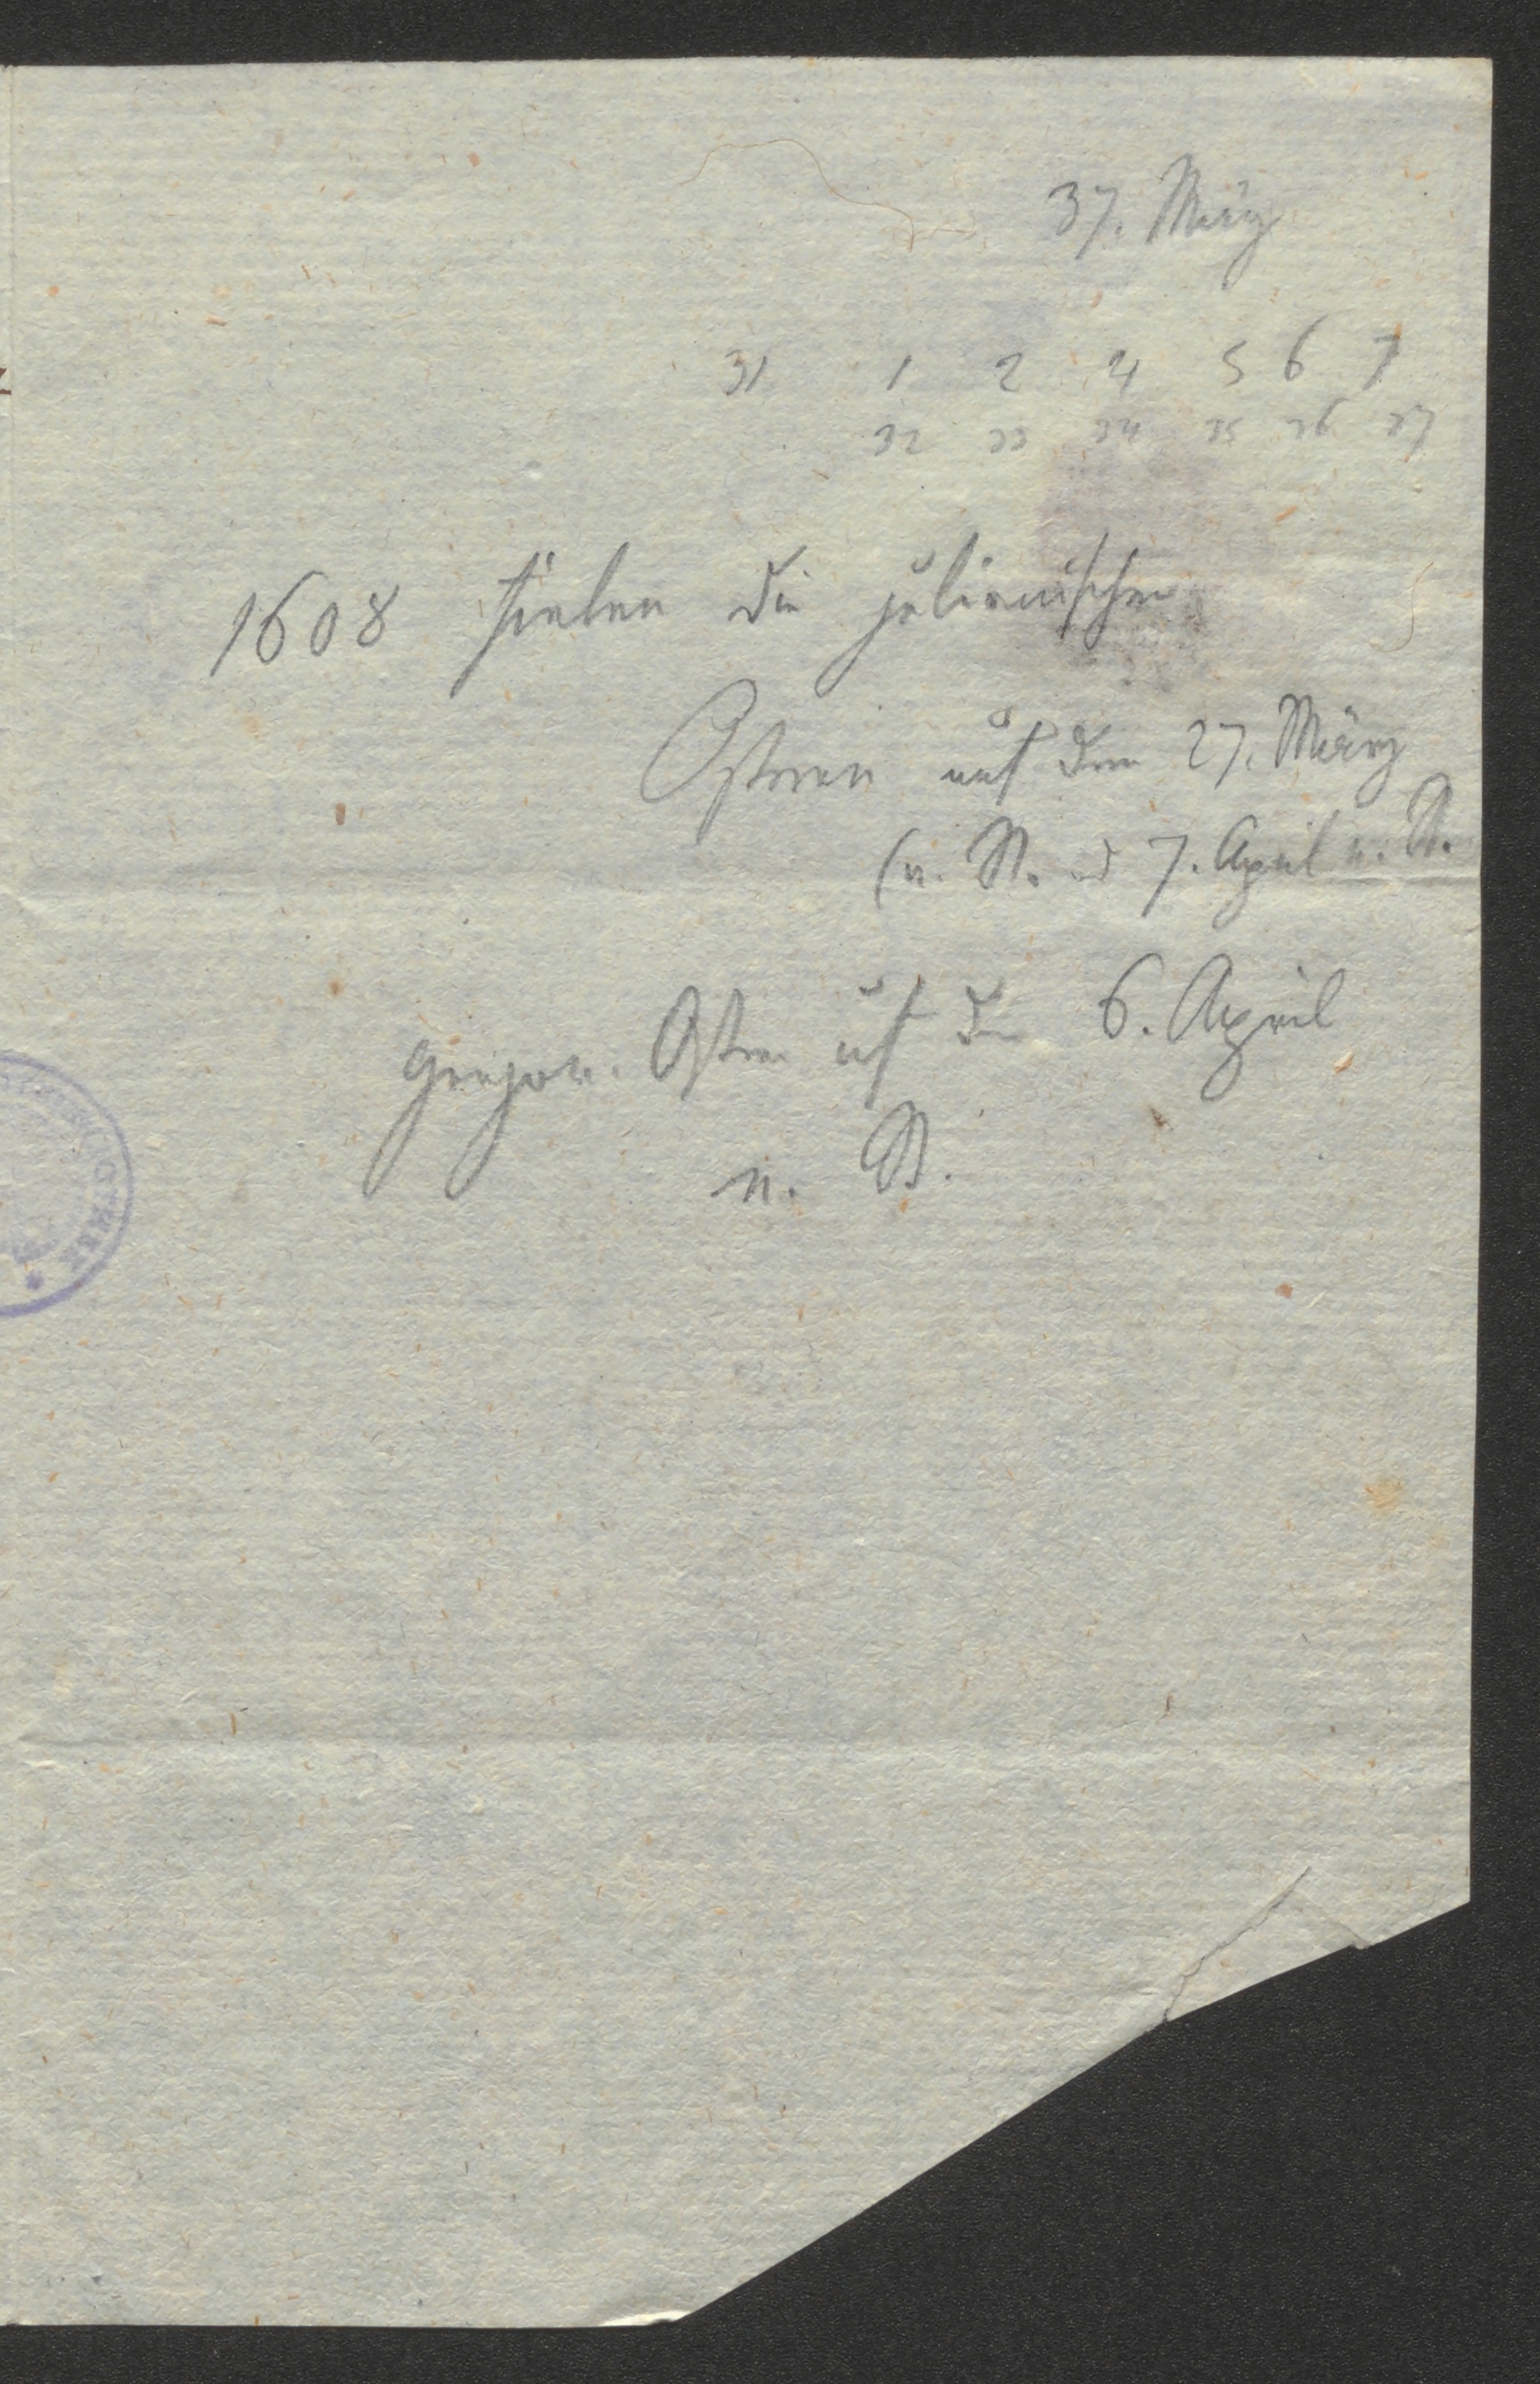 37. März
31 1 2 4 5 6 7
32 33 34 35 36 37
1608 fielen die julianischen
Ostern auf den 27. März
(a. St. od 7. April n. St.
gregor. Ostern auf den 6. April
n. St.